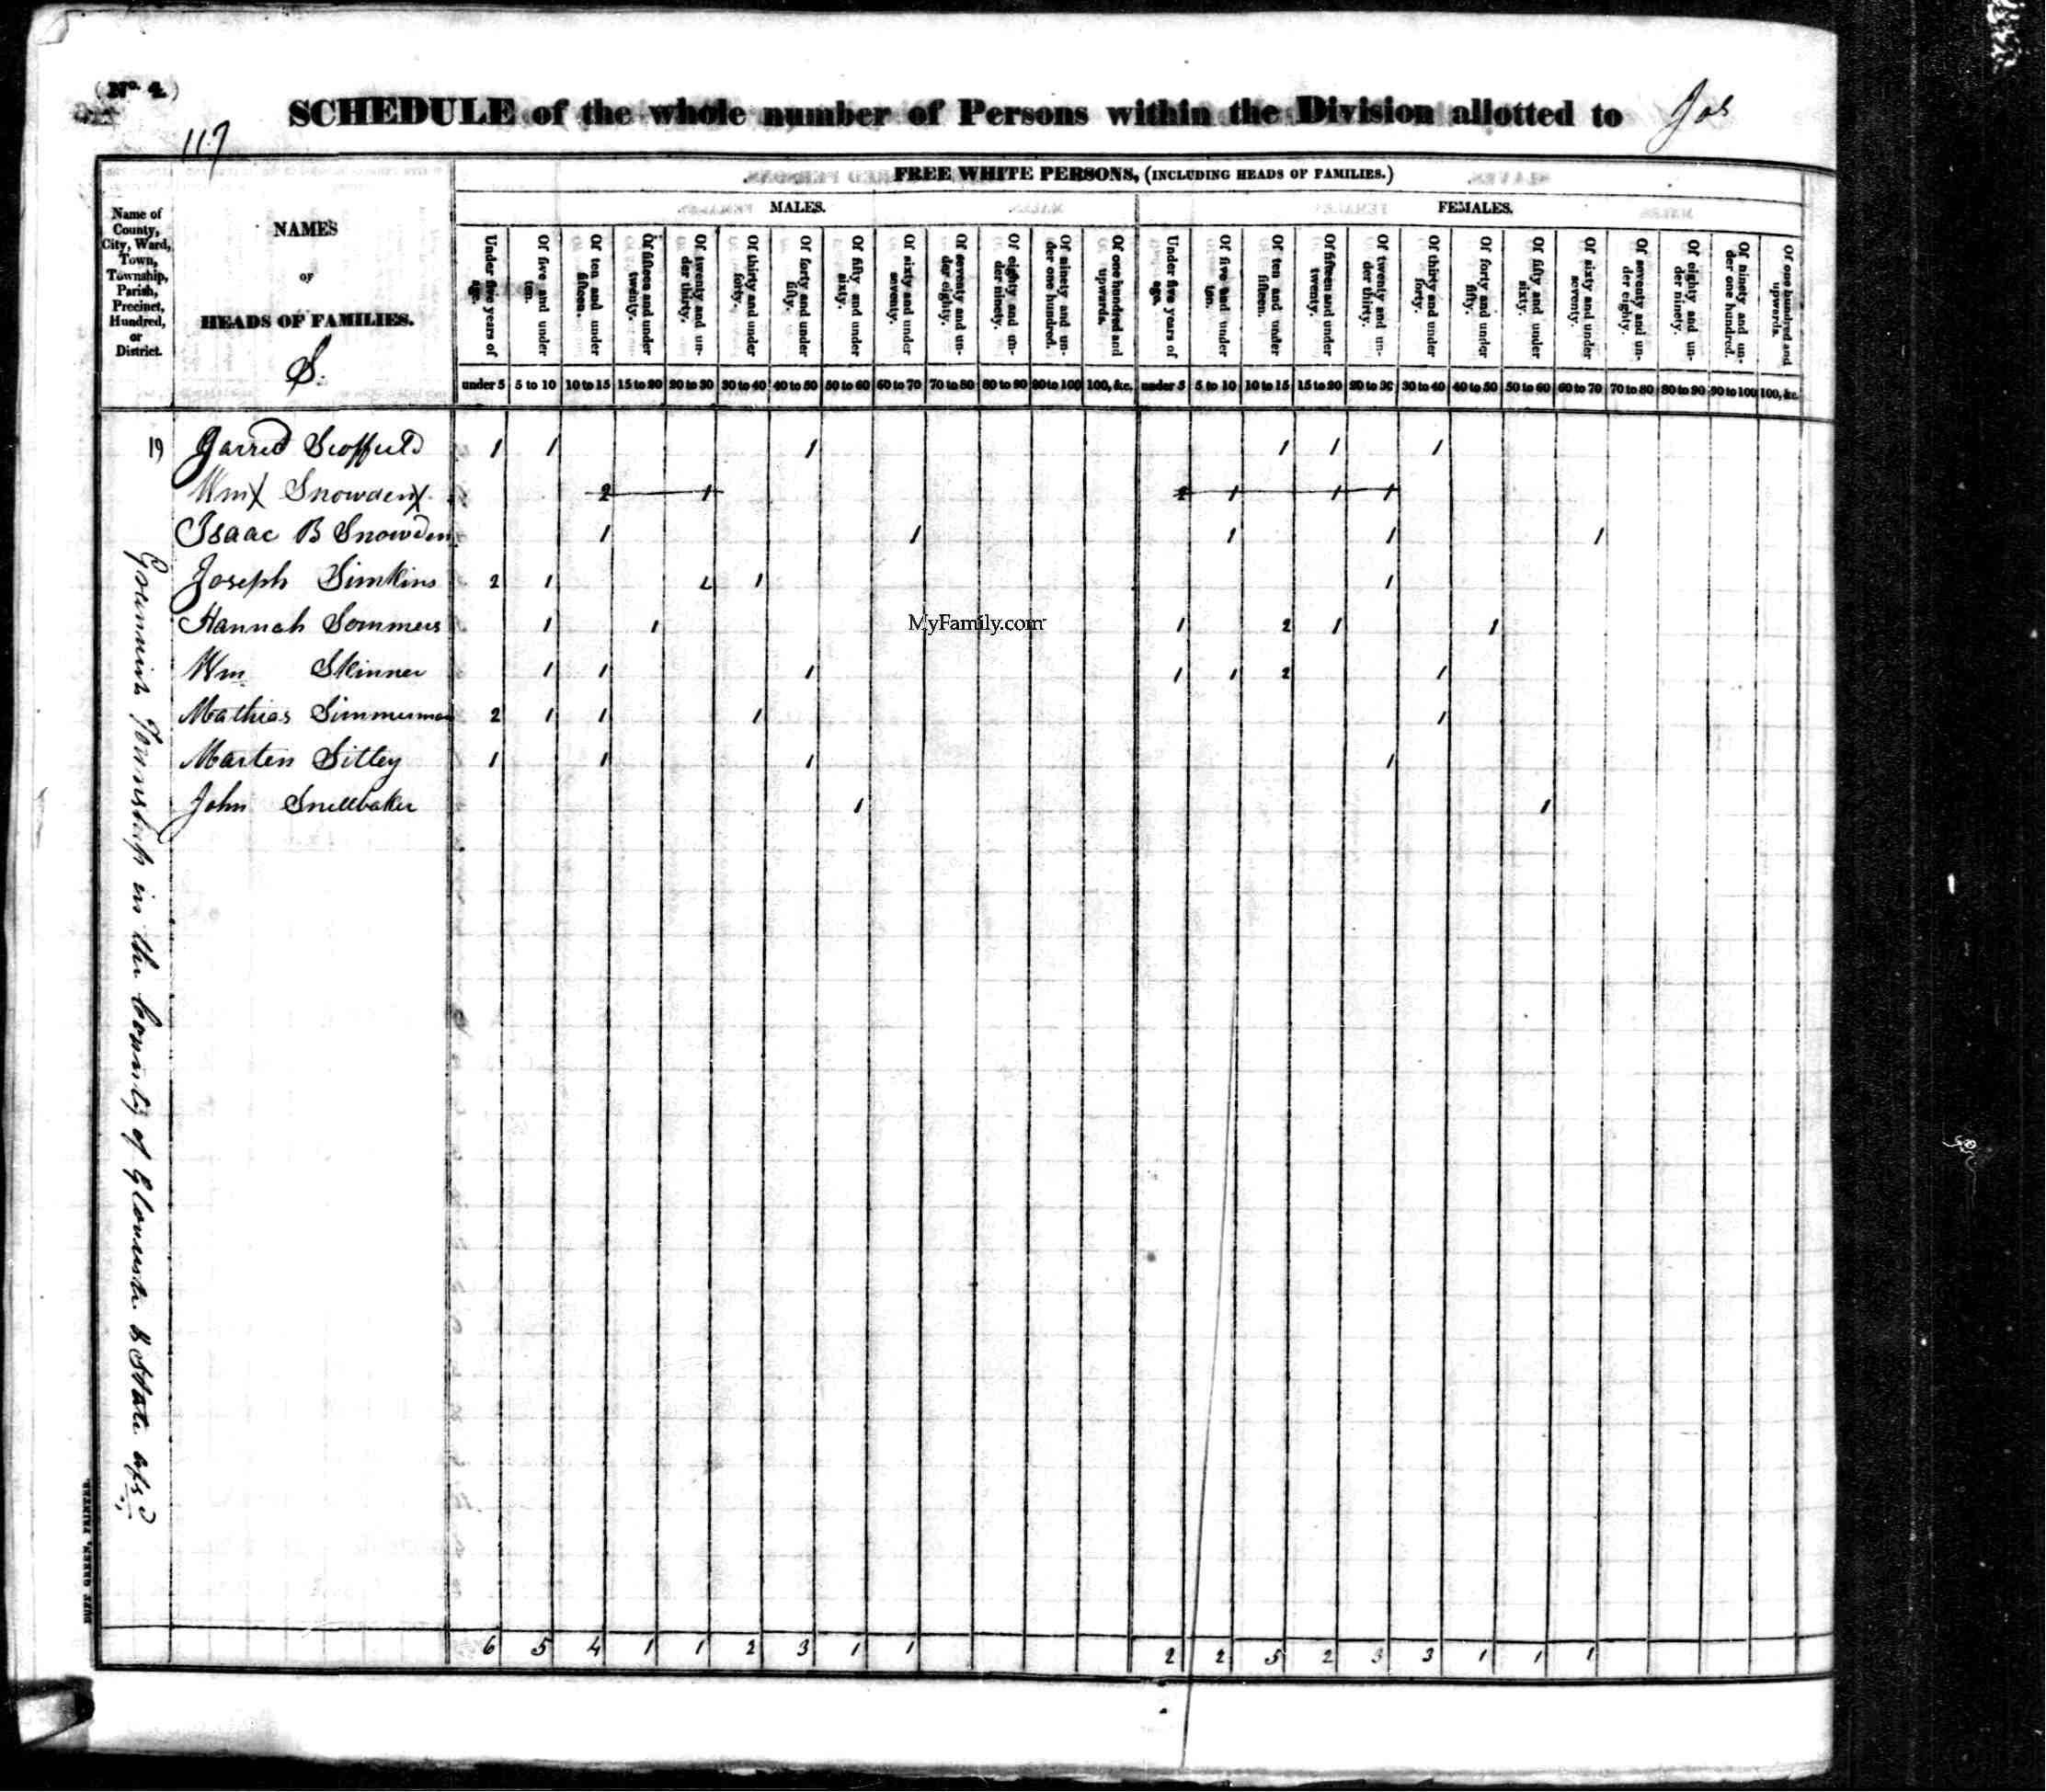 (No. 4)
117
SCHEDULE of the whole number of Persons within the Division allotted to Jos
FREE WHITE PERSONS, (INCLUDING HEADS OF FAMILIES.)
MALES. FEMALES.
Name of County, City, Ward, Town, Township, Parish, Precinct, Hundred, or District.
NAMES
OF
HEADS OF FAMILIES.
S.
Under five years of age.
Of five and under ten.
Of ten and under fifteen.
Of fifteen and under twenty.
Of twenty and under thirty.
Of thirty and under forty.
Of forty and under fifty.
Of fifty and under sixty.
Of sixty and under seventy.
Of seventy and under eighty.
Of eighty and under ninety.
Of ninety and under one hundred.
Of one hundred and upwards.
Under five years of age.
Of five and under ten.
Of ten and under fifteen.
Of fifteen and under twenty.
Of twenty and under thirty.
Of thirty and under forty.
Of forty and under fifty.
Of fifty and under sixty.
Of sixty and under seventy.
Of seventy and under eighty.
Of eighty and under ninety.
Of ninety and under one hundred.
Of one hundred and upwards.
under 5 5 to 10 10 to 15 15 to 20 20 to 30 30 to 40 40 to 50 50 to 60 60 to 70 70 to 80 80 to 90 90 to 100 100, &c. under 5 5 to 10 10 to 15 15 to 20 20 to 30 30 to 40 40 to 50 50 to 60 60 to 70 70 to 80 80 to 90 90 to 100 100, &c.
19 Garred Scoffield 1 1 1 1 1 1
Wm Snowden 2 1 2 1 1 1
Isaac B Snowden 1 1 1 1 1
Joseph Simkins 2 1 1 1
Hannah Sommers 1 1 1 2 1 1
MyFamily.com
Wm Skinner 1 1 1 1 1 2 1
Mathias Simmerman 2 1 1 1 1
Marten Sitley 1 1 1 1
John Snellbaker 1 1
Township in the County of Gloucester & State afsd
6 5 4 1 1 2 3 1 1 2 2 5 2 3 3 1 1 1
DUFF GREEN, PRINTER.